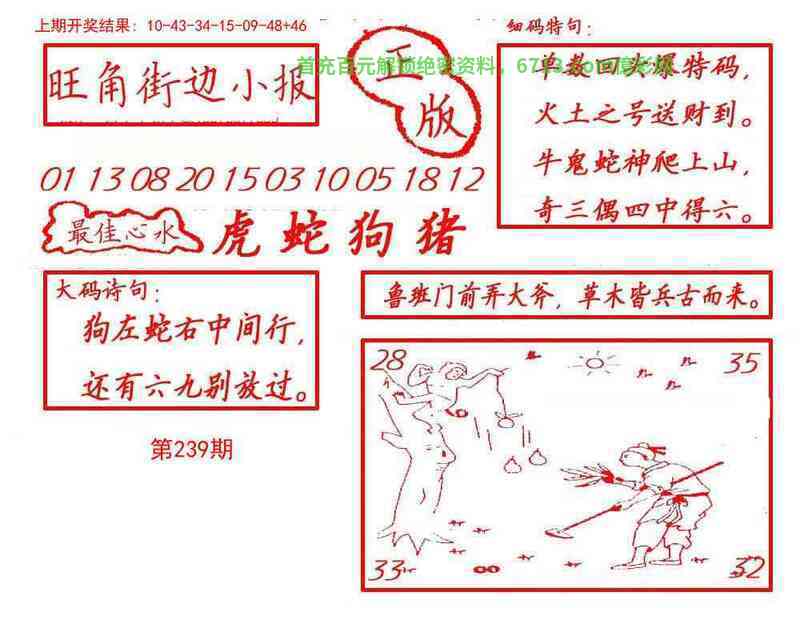 上期开奖结果：10-43-34-15-09-48+46
旺角街边小报
正版
首充百元解锁绝密资料，
01 13 08 20 15 03 10 05 18 12
最佳心水
虎 蛇 狗 猪
细码特句：
单数回头爆特码，
火土之号送财到。
牛鬼蛇神爬上山，
奇三偶四中得六。
大码诗句：
狗左蛇右中间行，
还有六九别放过。
第239期
鲁班门前弄大爷，草木皆兵古而来。
28
35
33
32